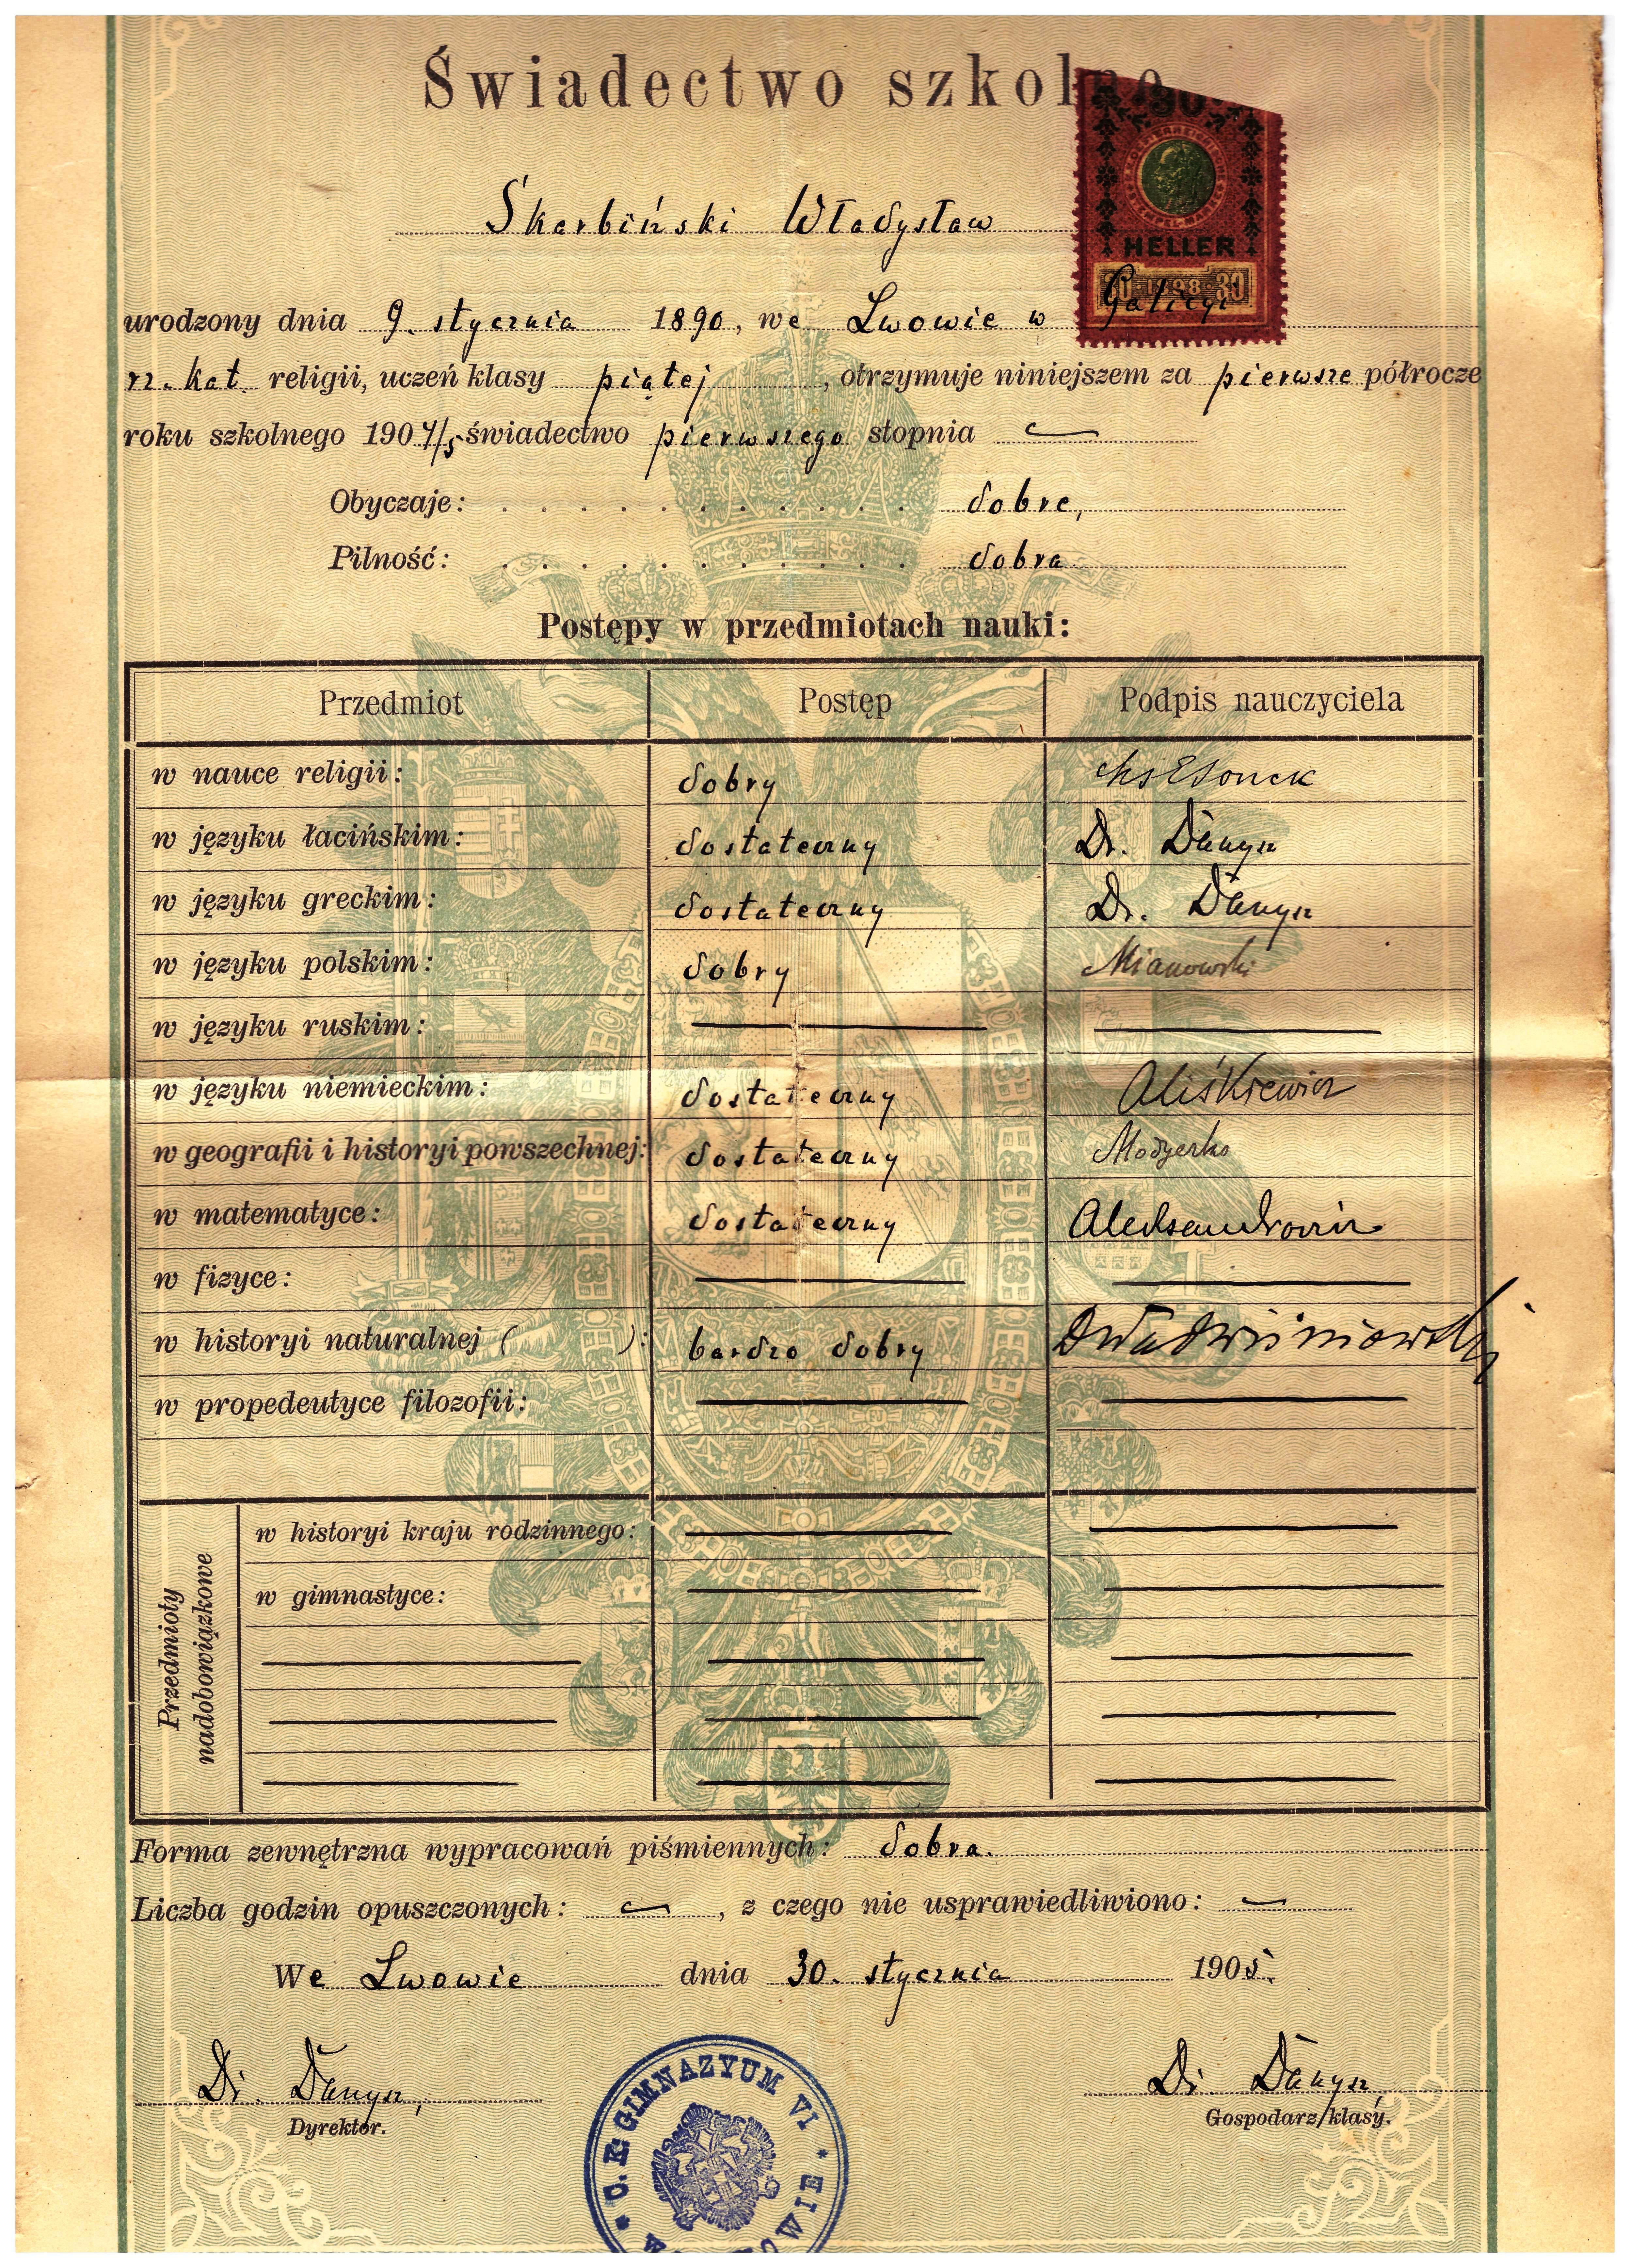 Świadectwo szkolne
30
HELLER
30 1898 30
Skarbiński Władysław
urodzony dnia 9. stycznia 1890, we Lwowie w Galicyi
rz. kat. religii, uczeń klasy piątej, otrzymuje niniejszem za pierwsze półrocze
roku szkolnego 1904/5 świadectwo pierwszego stopnia
Obyczaje: dobre,
Pilność: dobra
Postępy w przedmiotach nauki:
Przedmiot Postęp Podpis nauczyciela
w nauce religii: dobry
w języku łacińskim: dostateczny Dr. Danysz
w języku greckim: dostateczny Dr. Danysz
w języku polskim: dobry Mianowski
w języku ruskim:
w języku niemieckim: dostateczny Aliśkiewicz
w geografii i historyi powszechnej: dostateczny
w matematyce: dostateczny Aleksandrowicz
w fizyce:
w historyi naturalnej ( ): bardzo dobry Wiśniowski
w propedeutyce filozofii:
Przedmioty nadobowiązkowe
w historyi kraju rodzinnego:
w gimnastyce:
Forma zewnętrzna wypracowań piśmiennych: dobra.
Liczba godzin opuszczonych: , z czego nie usprawiedliwiono:
We Lwowie dnia 30. stycznia 1905.
Dr. Danysz, Dr. Danysz
Dyrektor. Gospodarz klasy.
C. K. GIMNAZYUM VI *